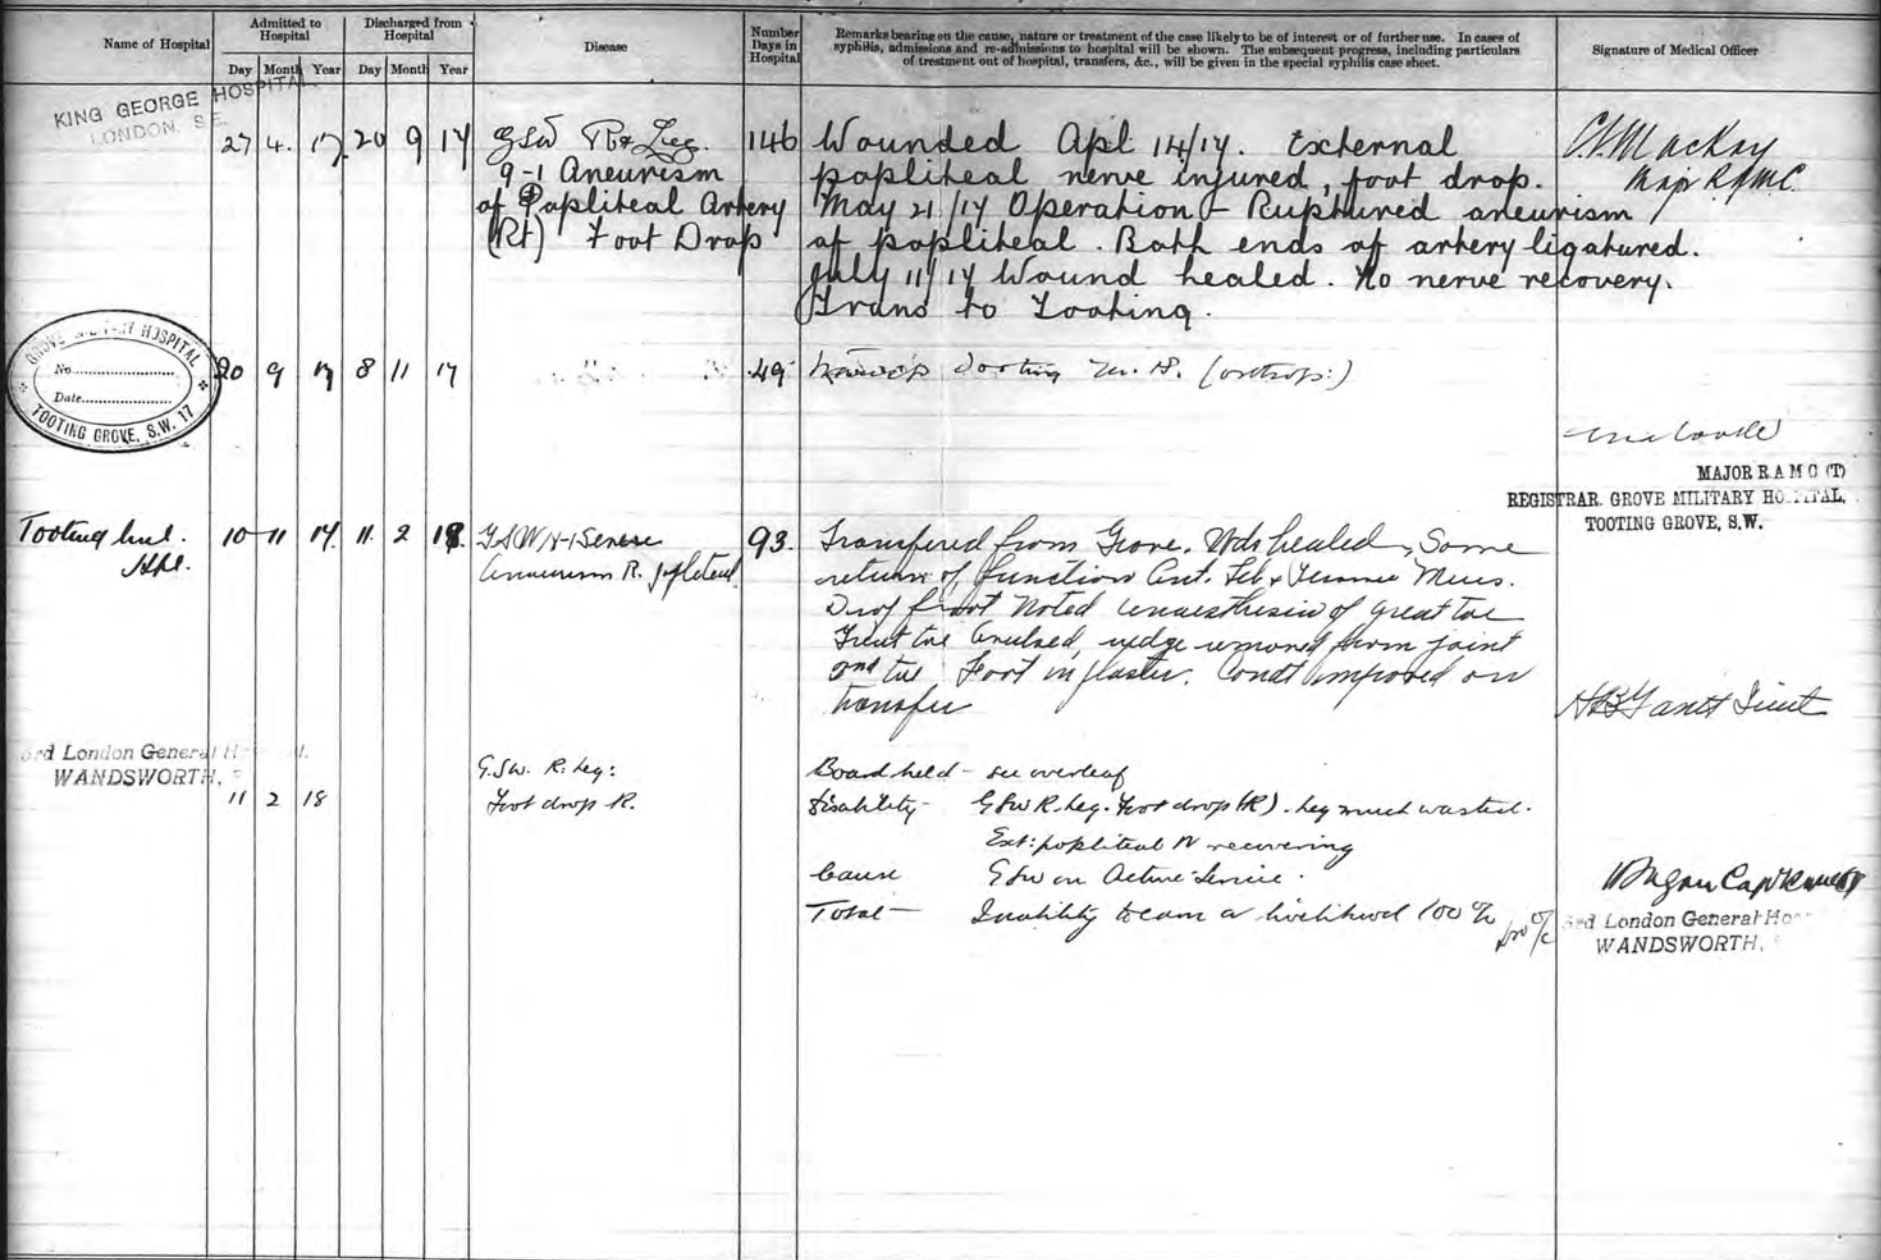 Name of Hospital
Admitted to
Hospital
Discharged from
Hospital
Disease
Number
Days in
Hospital
Remarks bearing on the cause, nature or treatment of the case likely to be of interest or of further use. In cases of
syphilis, admissions and re-admissions to hospital will be shown. The subsequent progress, including particulars
of treatment out of hospital, transfers, &c., will be given in the special syphilis case sheet.
Signature of Medical Officer
Day Month Year Day Month Year
KING GEORGE HOSPITAL
LONDON. S.E.
27 4. 17. 20 9 17
GSW Rt Leg.
9-1 Aneurism
of Popliteal Artery
(Rt) Foot Drop
146
Wounded Apl 14/17. External
popliteal nerve injured, foot drop.
May 21/17 Operation - Ruptured aneurism
of popliteal. Both ends of artery ligatured.
July 11/17 Wound healed. No nerve recovery.
Trans to Tooting.
C. MacKay
Major R.A.M.C.
GROVE MILITARY HOSPITAL
No.
Date
TOOTING GROVE, S.W. 17
20 9 17 8 11 17
49
Tooting M. H. (orthop:)
MAJOR R A M C (T)
REGISTRAR. GROVE MILITARY HOSPITAL,
TOOTING GROVE, S.W.
Tooting Mil.
Hpl.
10 11 17. 11. 2 18.
GSW
Aneurism R. popliteal
93.
Transfered from Grove. Wds healed, Some
return of function Ant. Tib & Peronei Musc.
Drop foot noted anaesthesia of great toe
Great toe, wedge removed from joint
2nd toe Foot in plaster. Condt improved on
transfer
Gantt Lieut
3rd London General H
WANDSWORTH,
11 2 18
G.S.W. R. Leg:
Foot drop R.
Board held - see overleaf
Disability - GSW R. Leg. Foot drop (R). Leg much wasted.
Ext: popliteal N recovering
Cause GSW on Active Service.
Total - Inability to earn a livelihood 100 %
Capt RAMC
3rd London General Ho
WANDSWORTH,